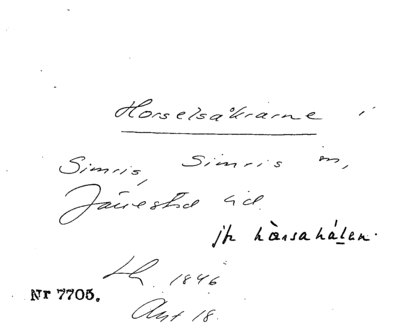 Horselsåkrarne i
Simris, Simris sn,
Järrestad hd
jfr hòrsahálen.
Lh 1846
Nr 7705.
Akt 18.